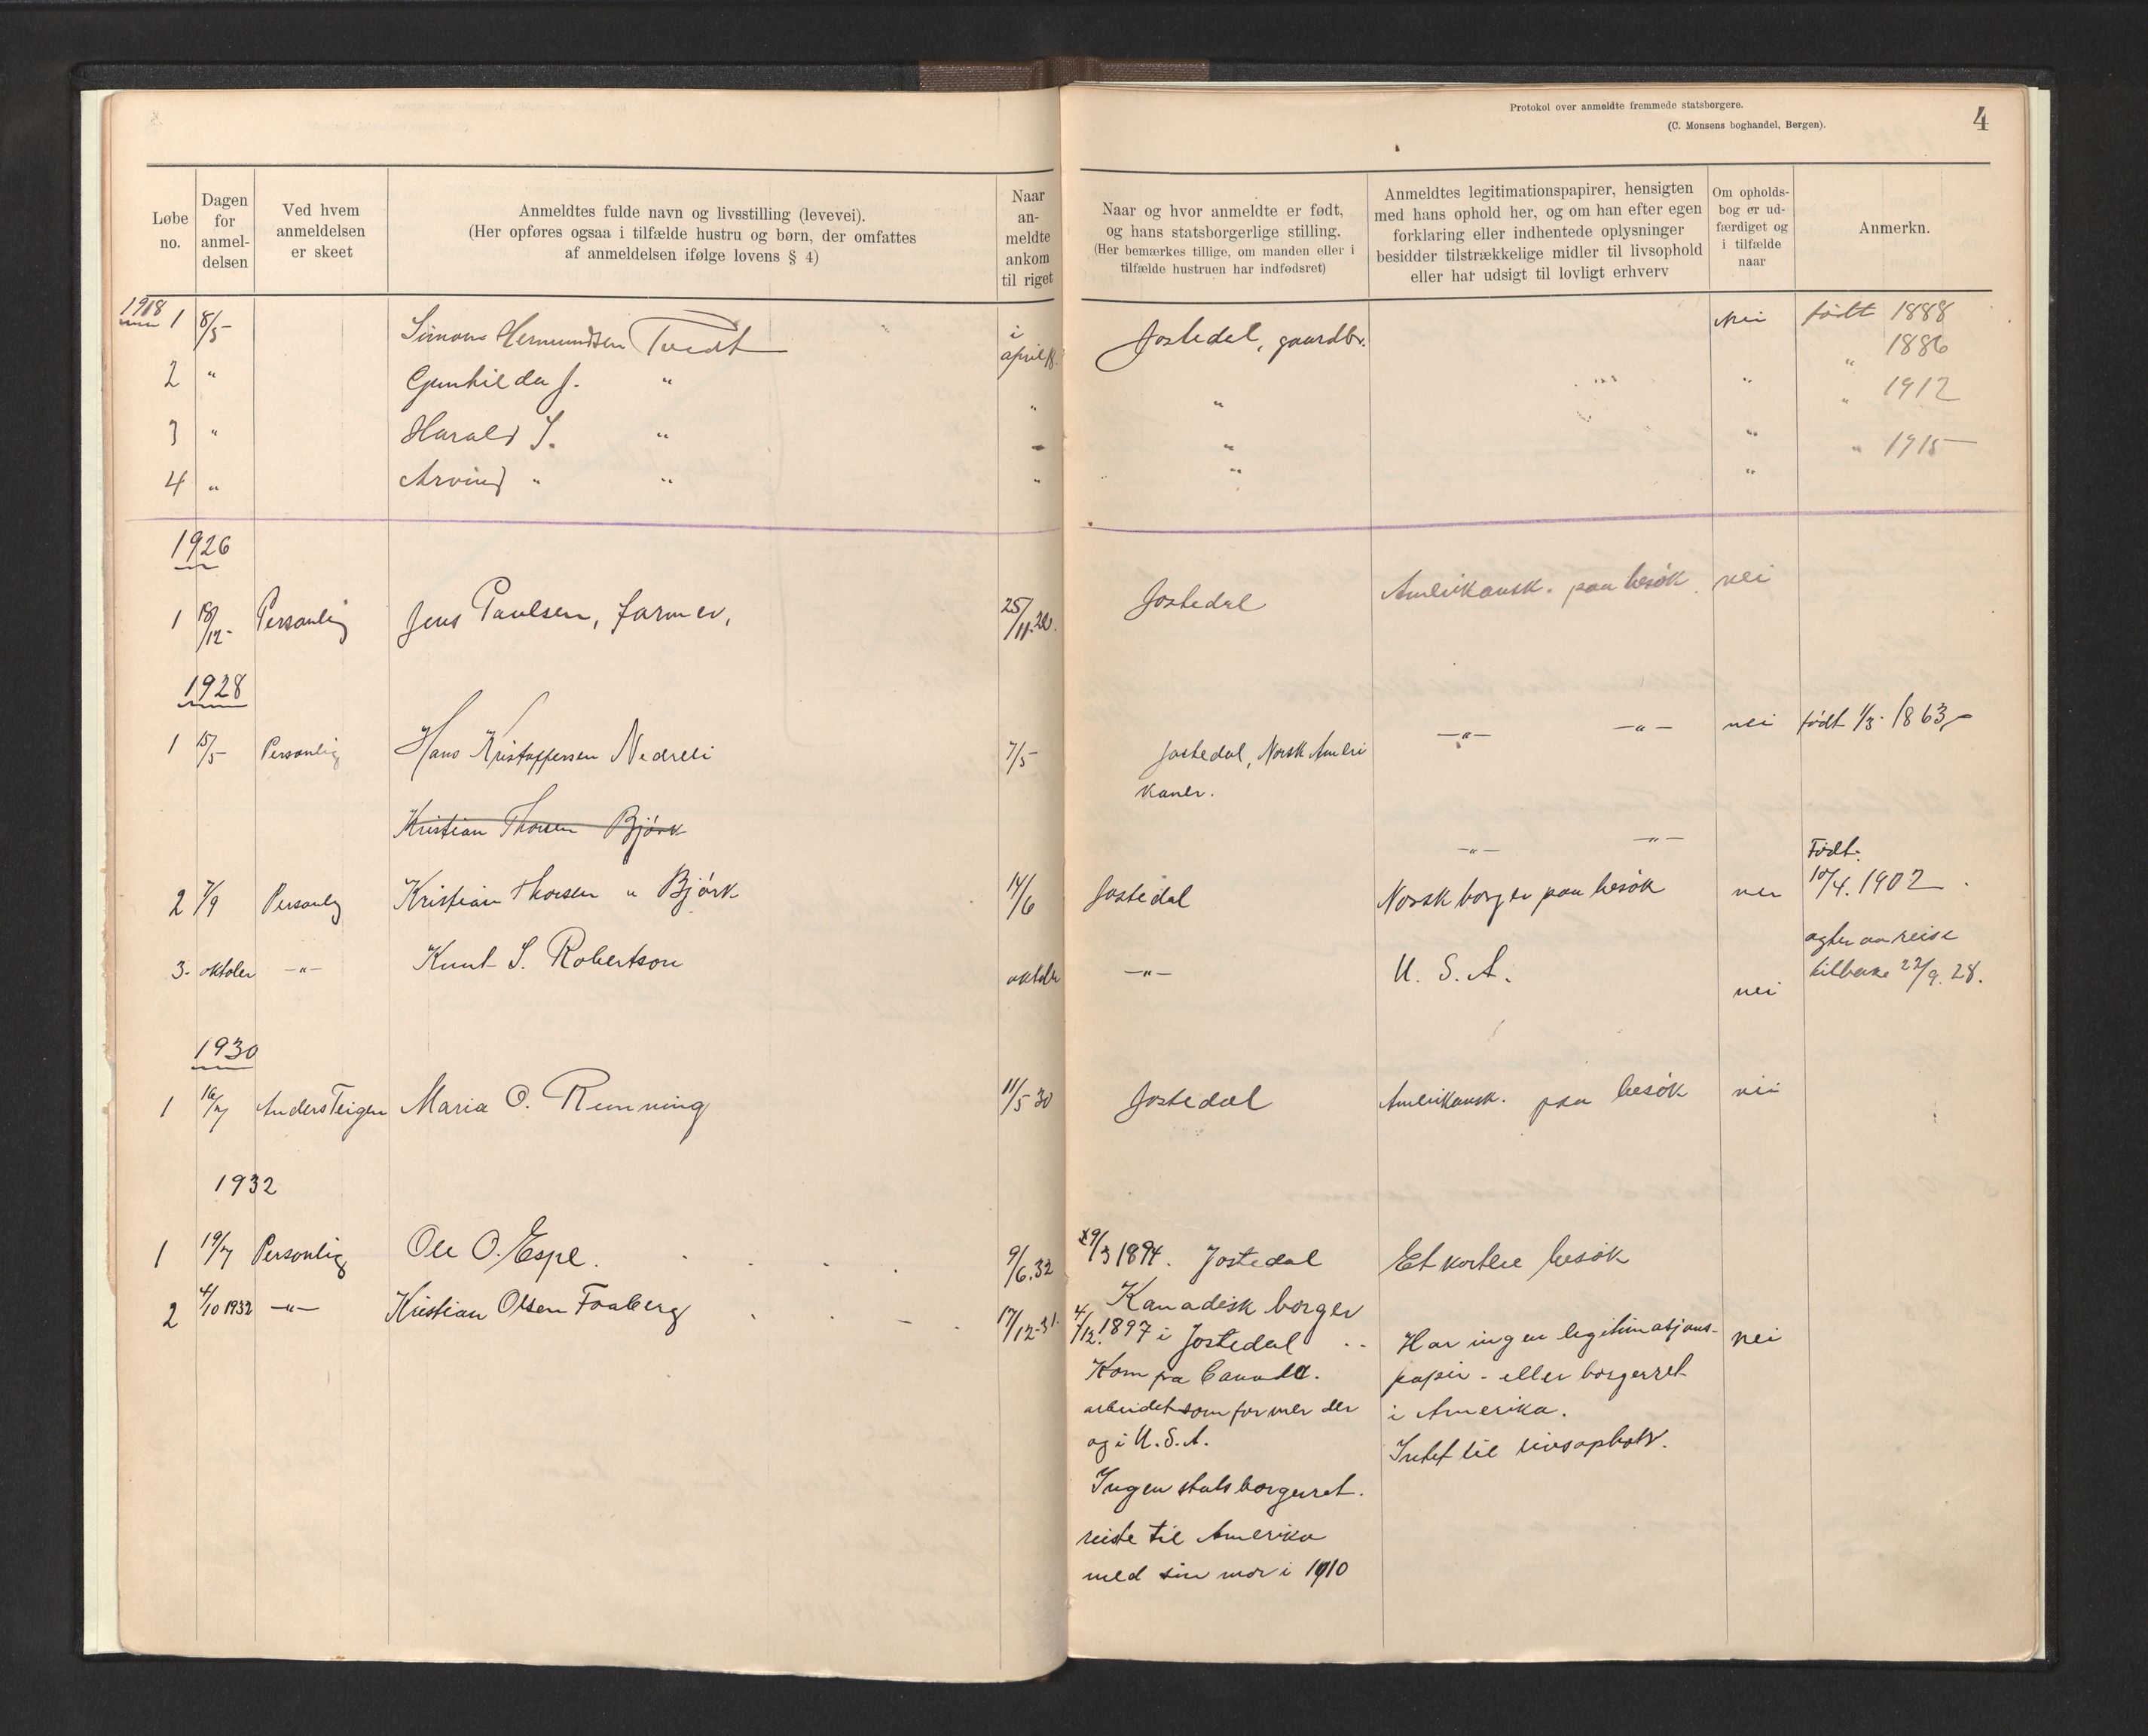 Protokol over anmeldte fremmede statsborgere.
(C. Monsens boghandel, Bergen).
4
Løbe no.
Dagen for anmel- delsen
Ved hvem anmeldelsen er skeet
Anmeldtes fulde navn og livsstilling (levevei).
(Her opføres ogsaa i tilfælde hustru og børn, der omfattes
af anmeldelsen ifølge lovens § 4)
Naar an- meldte ankom til riget
Naar og hvor anmeldte er født,
og hans statsborgerlige stilling.
(Her bemærkes tillige, om manden eller i
tilfælde hustruen har indfødsret)
Anmeldtes legitimationspapirer, hensigten
med hans ophold her, og om han efter egen
forklaring eller indhentede oplysninger
besidder tilstrækkelige midler til livsophold
eller har udsigt til lovligt erhverv
Om opholds- bog er ud- færdiget og i tilfælde naar
Anmerkn.
1918
1 8/5- Simon Hermundsen Tvedt i april 18. Jostedal, gaardbr. Nei født 1888
2 " Gunhilda J. " " " " " 1886
3 " Harald S. " " " " " 1912
4 " Arvind " " " " " " 1915
1926
1 18/12- Personlig Jens Paulsen, farmer, 25/11.26. Jostedal Amerikansk. paa besøk. nei
1928
1 15/5- Personlig Hans Kristoffersen Nedreli 7/5- Jostedal, Norsk Ameri
kaner. —"— —"— nei født 1/3- 1863,-
Kristian Thorsen Bjørk —"— —"—
2 7/9 Personlig Kristian Thorsen " Bjørk 14/6 Jostedal Norsk borger paa besøk nei Født:
10/4. 1902
3. oktober —"— Knut S. Robertson oktober —"— U. S. A. nei
agter aa reise
tilbake 22/9. 28.
1930
1 16/7 Anders Teigen Maria O. Running 11/5 30 Jostedal Amerikansk. paa besøk nei
1932
1 19/7 Personlig Ole O. Espe. 9/6.32 29/3 1894. Jostedal Et kortere besøk
Kanadisk borger
2 4/10 1932 —"— Kristian Olsen Faaberg 17/12-31. 4/12. 1897 i Jostedal
Kom fra Canada.
arbeidet som farmer der
og i U.S.A.
Ingen statsborgerret.
reiste til Amerika
med sin mor i 1910
Har ingen legitimasjons-
papir - eller borgerret
i Amerika.
Intet til livsophold.
nei